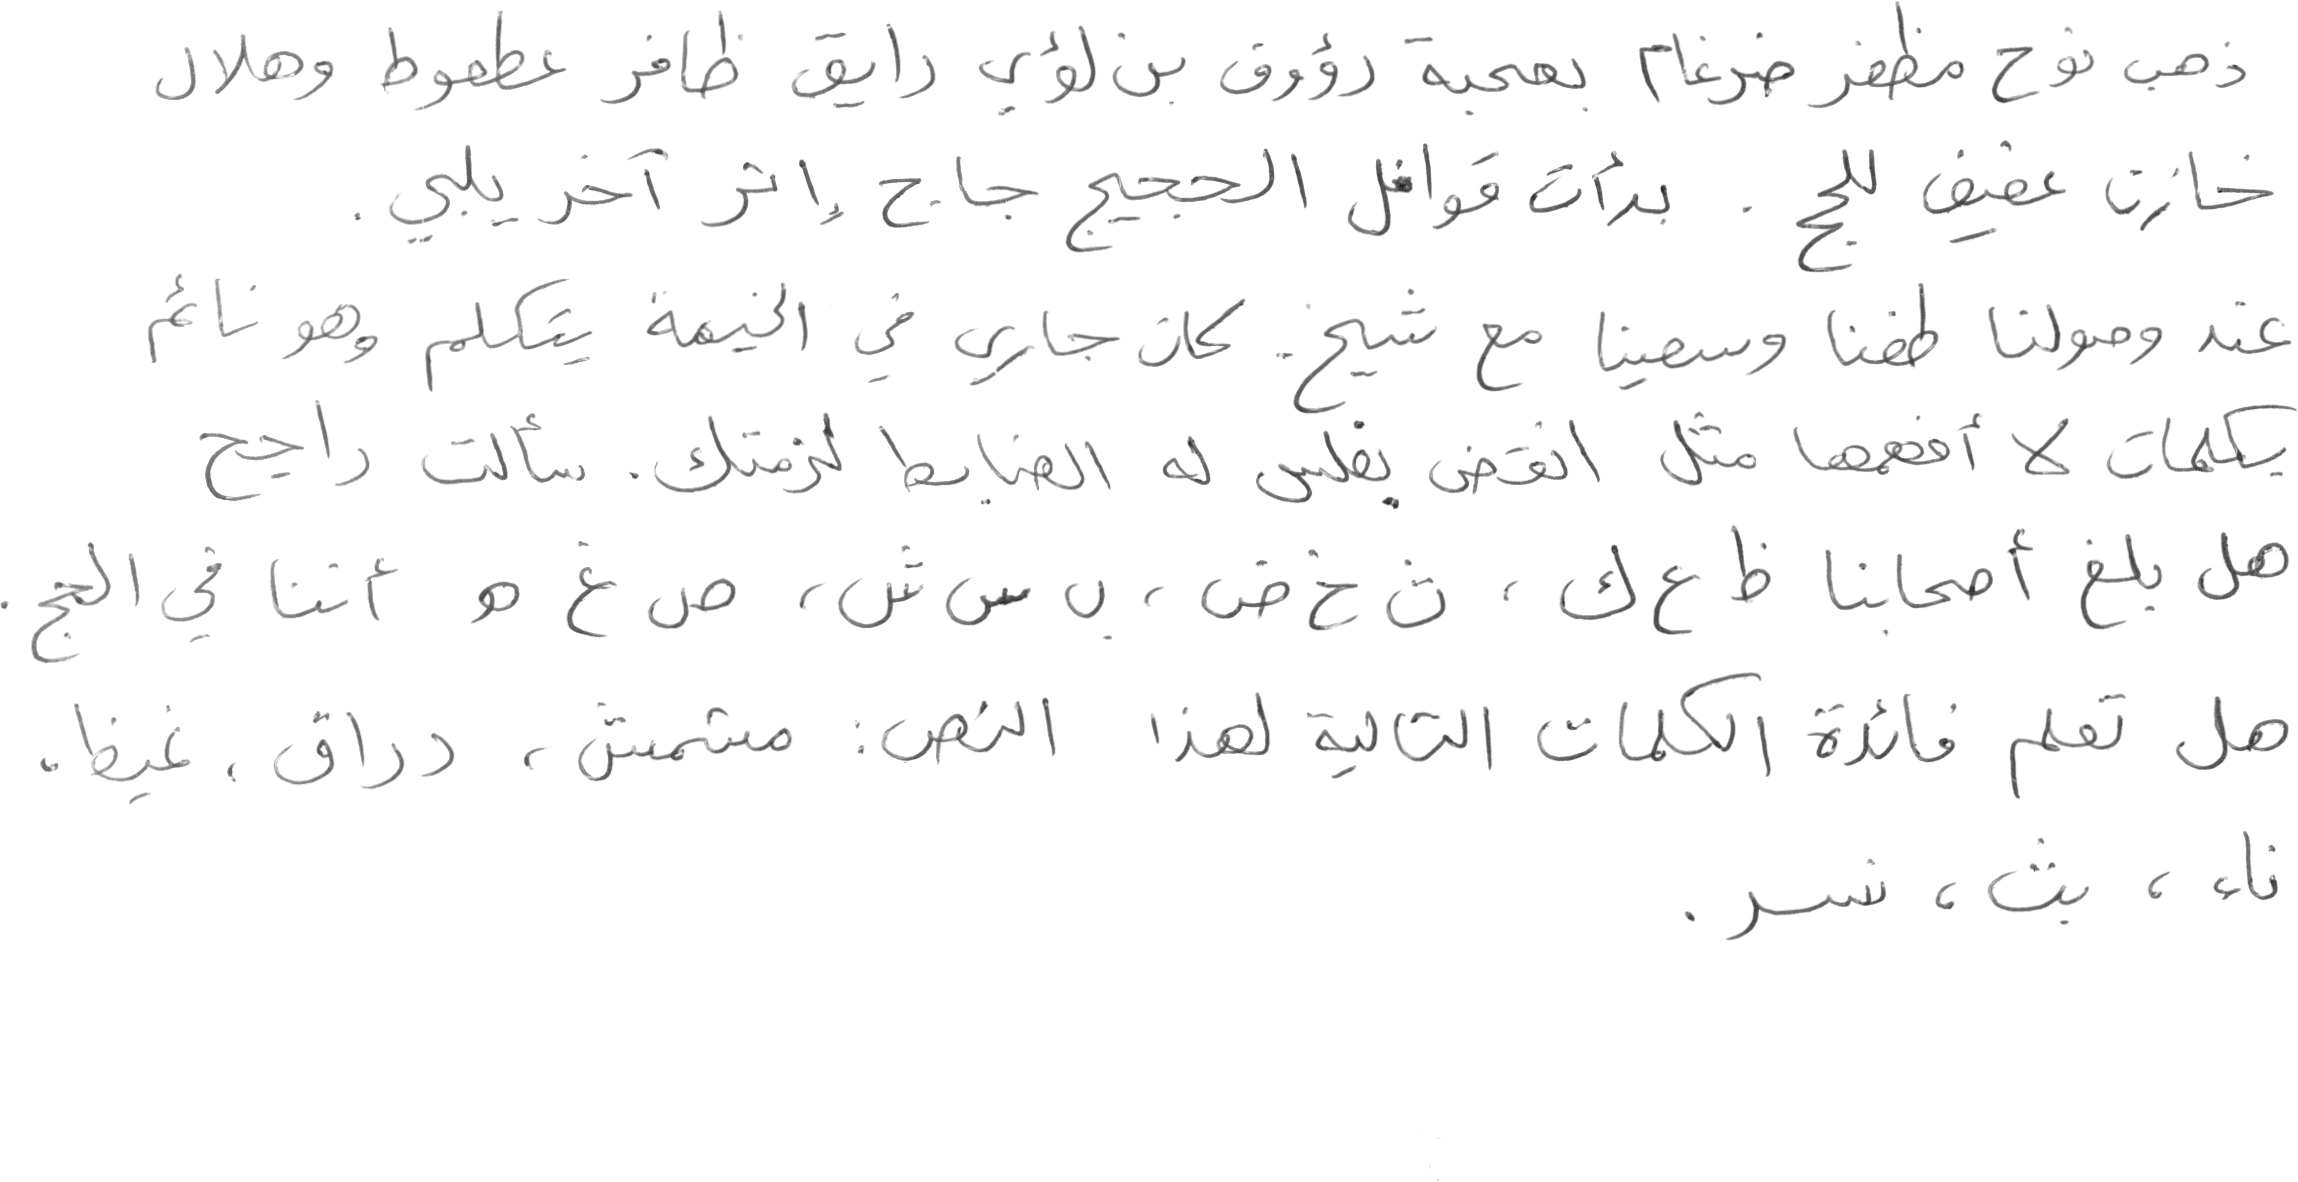 ذهب نوح مظفر ضرغام بصحبة رؤوف بن لؤي رايق ظافر عطعوط وهلال
خازن عفيف للحج . بدأت قوافل الحجيج حاج إثر آخر يلبي .
عند وصولنا طفنا وسعينا مع شيخ . كان جاري في الخيمة يتكلم وهو نائم
بكلمات لا أفهمها مثل انقض يغلس له الضابط لزمتك . سألت راجح
هل بلغ أصحابنا ظ ع ك ، ث خ ض ، ب س ش ، ص غ ه أننا في الحج .
هل تعلم فائدة الكلمات التالية لهذا النص : مشمش ، دراق ، غيظ ،
ناء ، بث ، نسر .